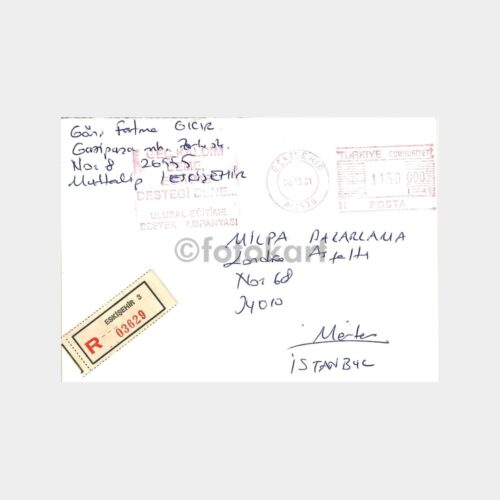 Gön: Fatma GICIR
Gazipaşa mh.
No: 8 26555
Muttalip / ESKİŞEHİR
GEÇ KALDIM
DEME
DESTEĞİ DENE...
ULUSAL EĞİTİME
DESTEK KAMPANYASI
ESKİŞEHİR
TÜRKİYE CUMHURİYETİ
1150 000
POSTA
©fotokart
MİLPA PAZARLAMA
Londra Asfaltı
No: 68
34010
Merter
İSTANBUL
ESKİŞEHİR 3
R 03629